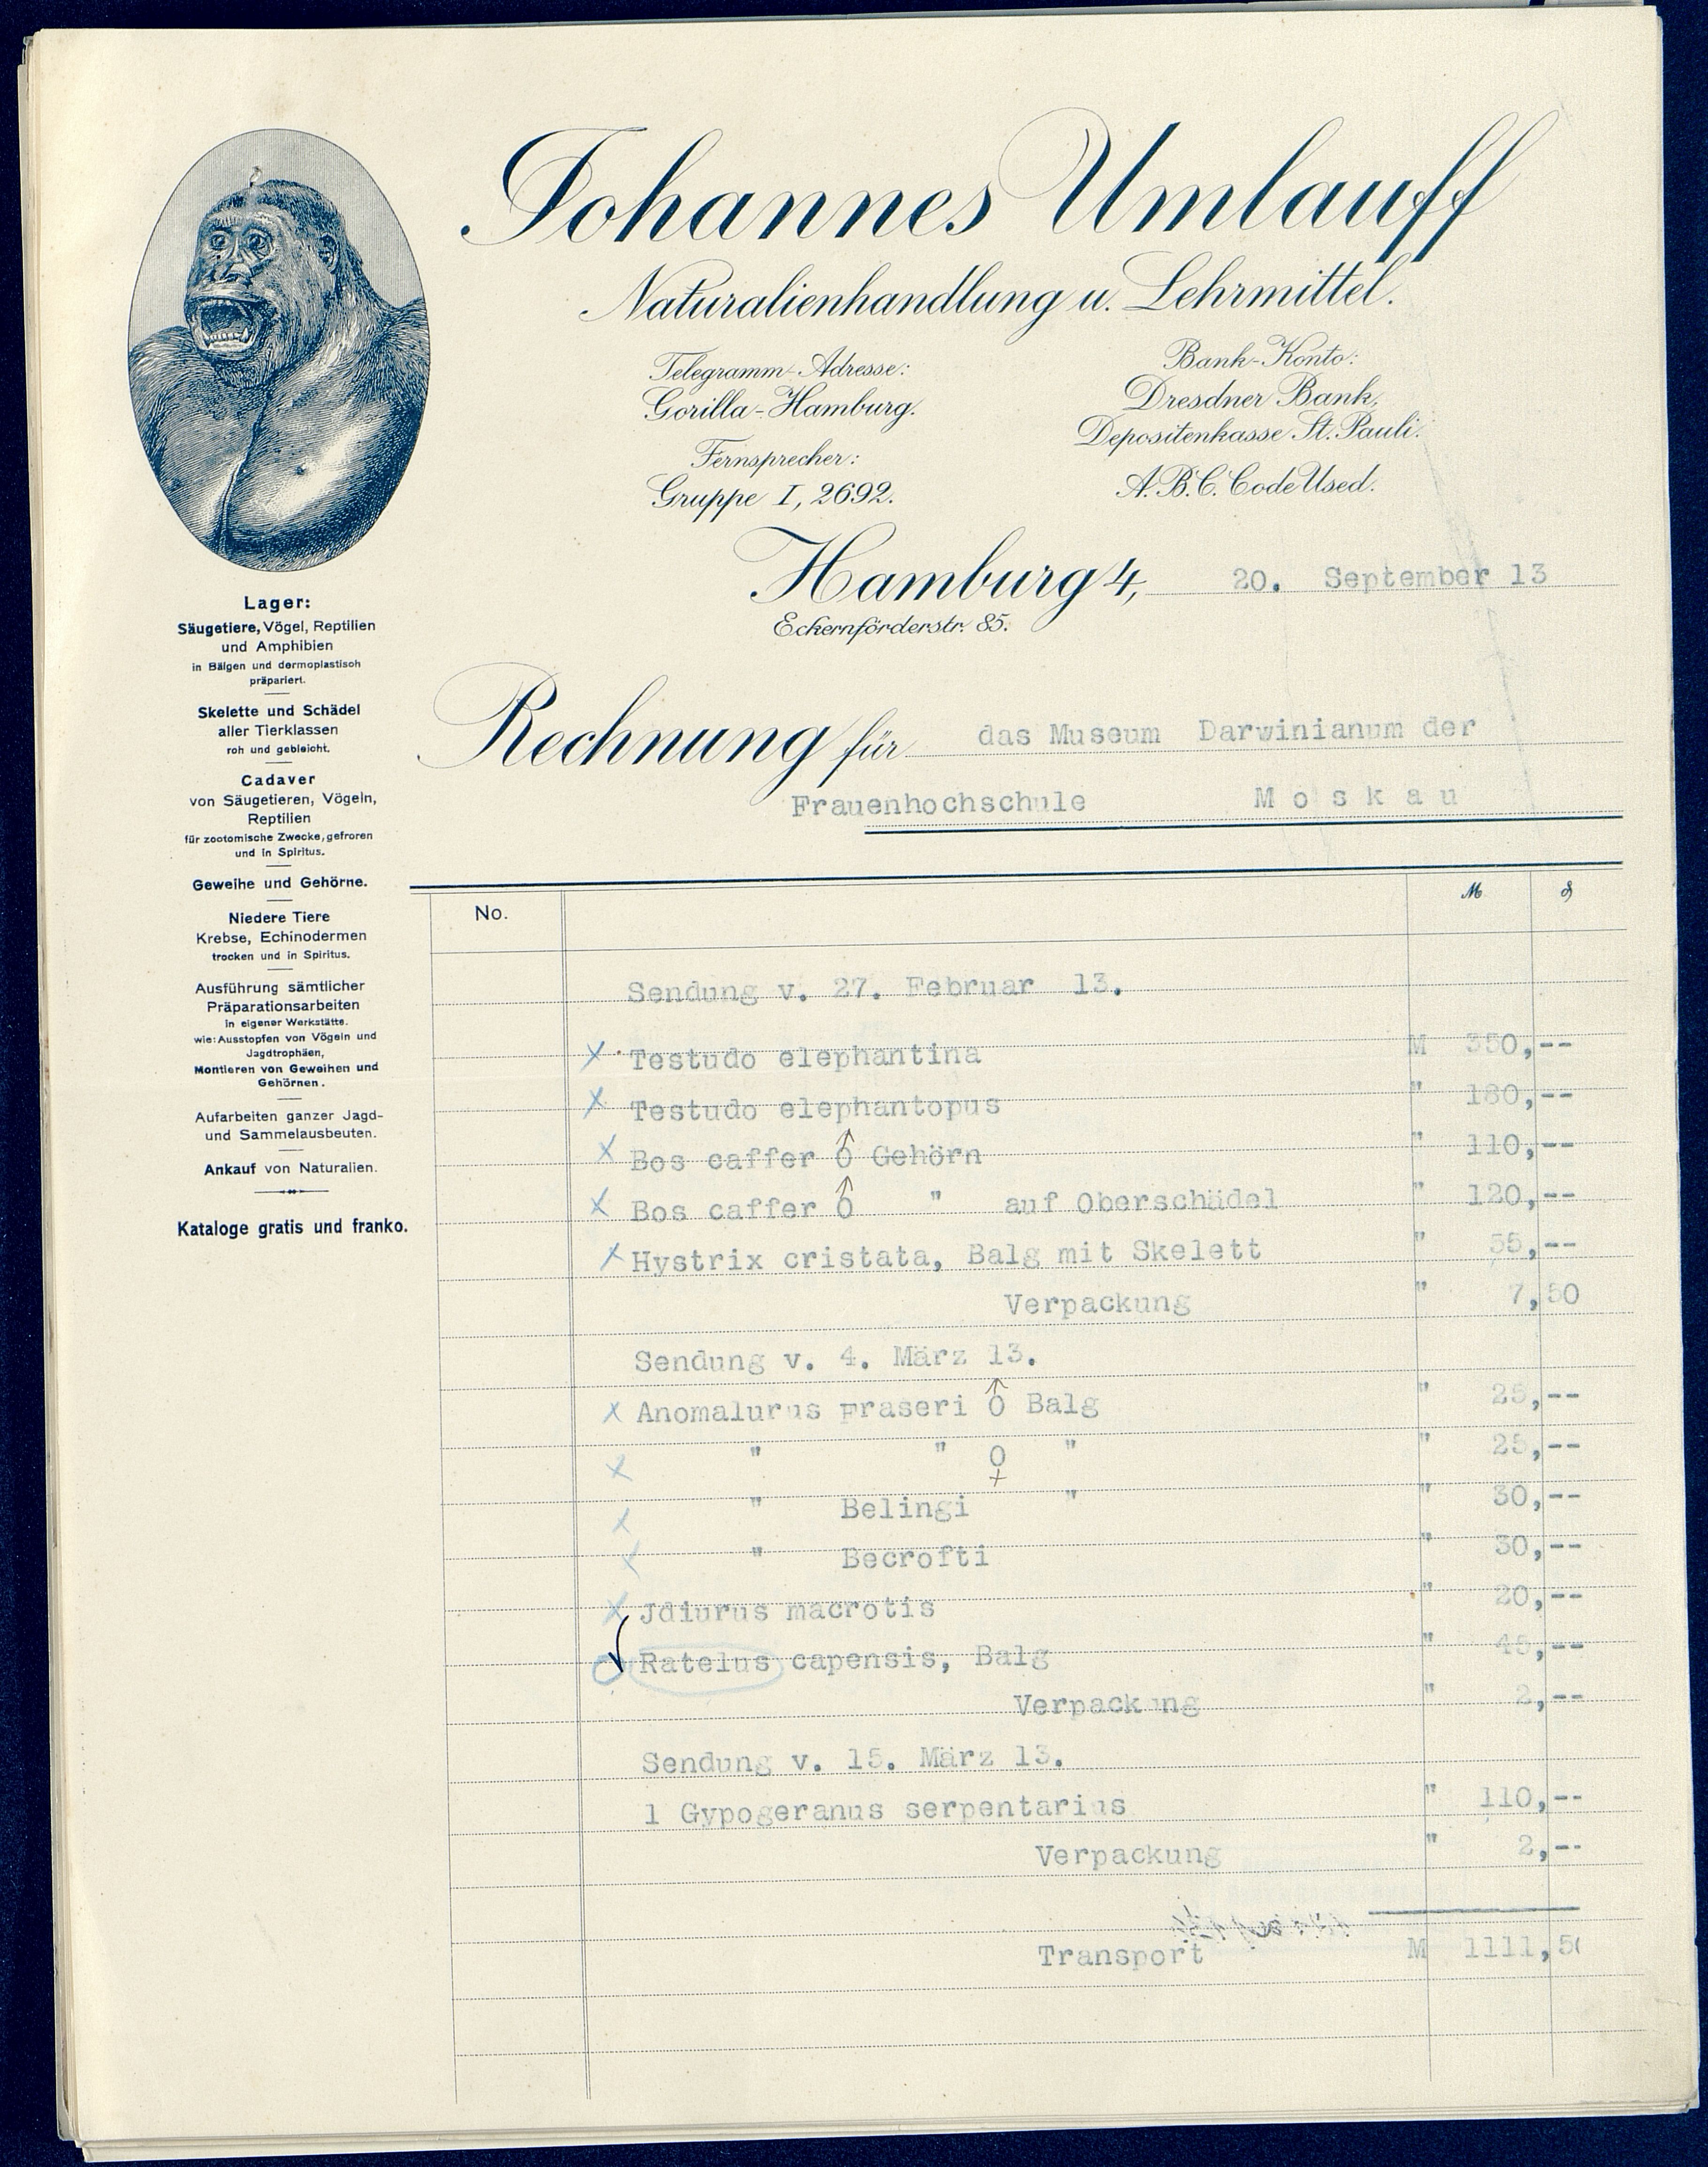 Johannes Umlauff
Naturalienhandlung u. Lehrmittel.
Telegramm-Adresse:
Gorilla-Hamburg.
Fernsprecher:
Gruppe I, 2692.
Bank-Konto:
Dresdner Bank,
Depositenkasse St. Pauli.
A.B.C. Code Used.
Hamburg 4, 20. September 13
Eckernförderstr. 85.
Rechnung für das Museum Darwinianum der
Frauenhochschule Moskau
Lager:
Säugetiere, Vögel, Reptilien
und Amphibien
in Bälgen und dermoplastisch
präpariert.
Skelette und Schädel
aller Tierklassen
roh und gebleicht.
Cadaver
von Säugetieren, Vögeln,
Reptilien
für zootomische Zwecke, gefroren
und in Spiritus.
Geweihe und Gehörne.
Niedere Tiere
Krebse, Echinodermen
trocken und in Spiritus.
Ausführung sämtlicher
Präparationsarbeiten
in eigener Werkstätte.
wie: Ausstopfen von Vögeln und
Jagdtrophäen,
Montieren von Geweihen und
Gehörnen.
Aufarbeiten ganzer Jagd-
und Sammelausbeuten.
Ankauf von Naturalien.
Kataloge gratis und franko.
No. M ₰
Sendung v. 27. Februar 13.
x Testudo elephantina M 350,--
x Testudo elephantopus " 180,--
x Bos caffer ♂ Gehörn " 110,--
x Bos caffer ♂ " auf Oberschädel " 120,--
x Hystrix cristata, Balg mit Skelett " 55,--
Verpackung " 7,50
Sendung v. 4. März 13.
x Anomalurus Fraseri ♂ Balg " 25,--
x " " ♀ " " 25,--
x " Belingi " " 30,--
x " Becrofti " 30,--
x Jdiurus macrotis " 20,--
Ratelus capensis, Balg " 45,--
Verpackung " 2,--
Sendung v. 15. März 13.
1 Gypogeranus serpentarius " 110,--
Verpackung " 2,--
Transport M 1111,50